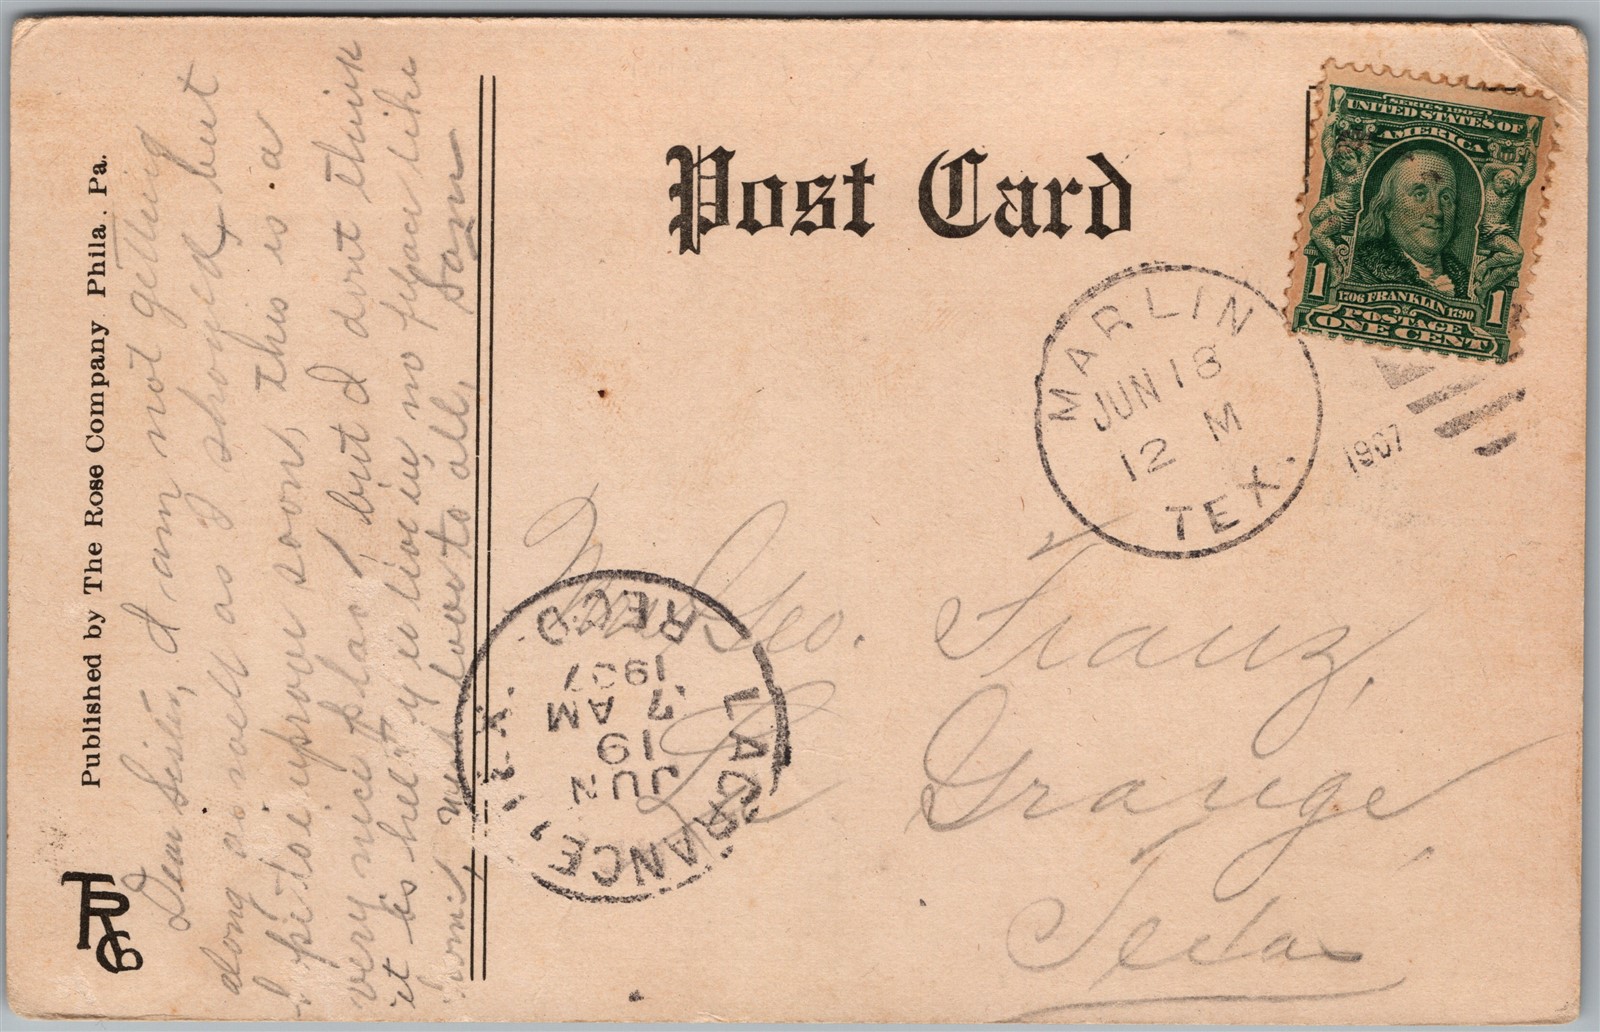 Published by The Rose Company Phila. Pa.
TRC
Dear Sister, I am not getting
along as well as I should, but
hope to improve soon, this is a
very nice place, but I don't think
it is healthy to live in, no place like
home, with love to all,
Post Card
SERIES 1902
UNITED STATES OF
AMERICA
1706 FRANKLIN 1790
POSTAGE
1 ONE CENT 1
MARLIN
JUN 18
12 M
TEX.
1907
Geo. Franz,
La Grange
Texas
LAGRANGE, TEX.
JUN
19
7 AM
1907
REC'D